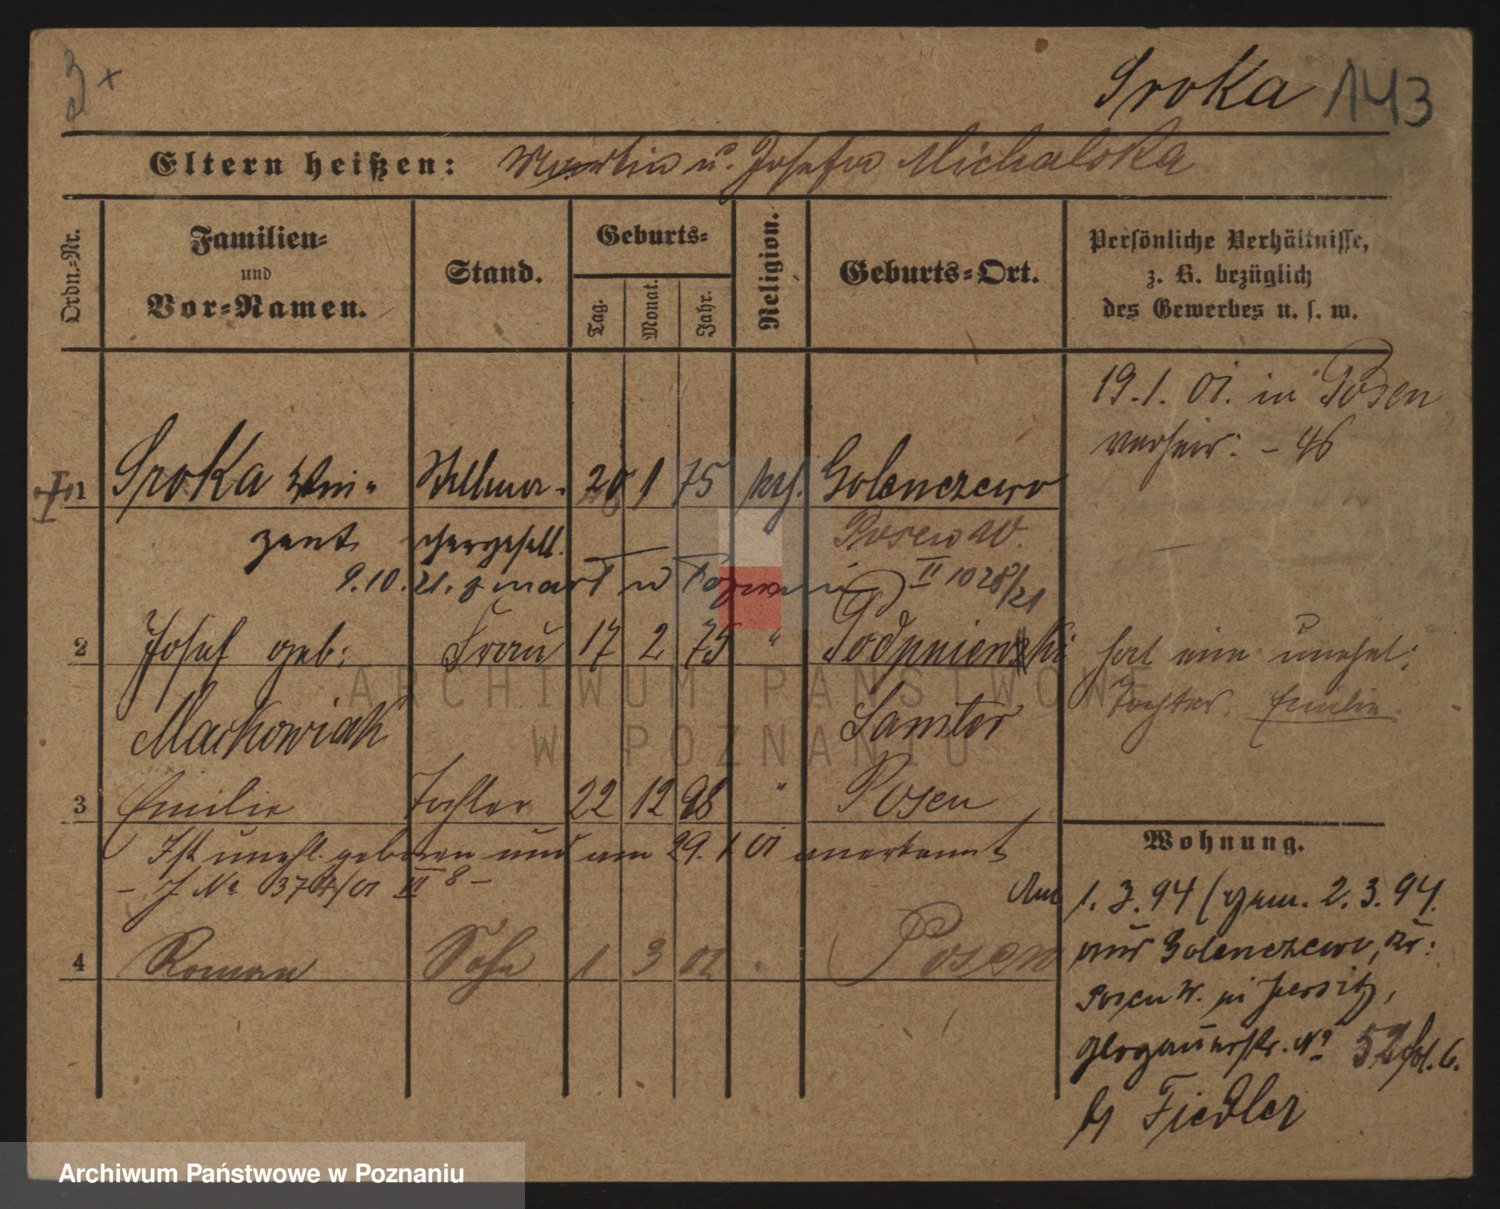 3 x
Sroka 143
Eltern heißen: Martin u. Josefa Michalska
Ordn.-Nr.
Familien-
und
Vor-Namen.
Stand.
Geburts-
Tag. Monat. Jahr.
Religion.
Geburts-Ort.
Persönliche Verhältnisse,
z. B. bezüglich
des Gewerbes u. s. w.
19.1.01. in Posen
verheir: - 46
1 Sroka Win- Stellma- 20 1 75 kth. Golenczewo
zent chergesell. Posen W.
9.10.21. zmarł w Poznaniu II 1028/21
2 Josef geb: Frau 17 2 75 " Podpniewski hat eine unehel:
Mackowiak Samter Tochter. Emilie.
3 Emilie Tochter 22 12 98 " Posen
Ist unehl. geboren und am 29.1.01 anerkannt
- J No 3704/01 III 8 -
4 Roman Sohn 1 3 02 " Posen
Wohnung.
Am 1.3.94 (gem. 2.3.94.
aus Golenczewo, Kr:
Posen W. in Jersitz,
Glogauerstr. No 52
bj Fiedler
ARCHIWUM PAŃSTWOWE
W POZNANIU
Archiwum Państwowe w Poznaniu